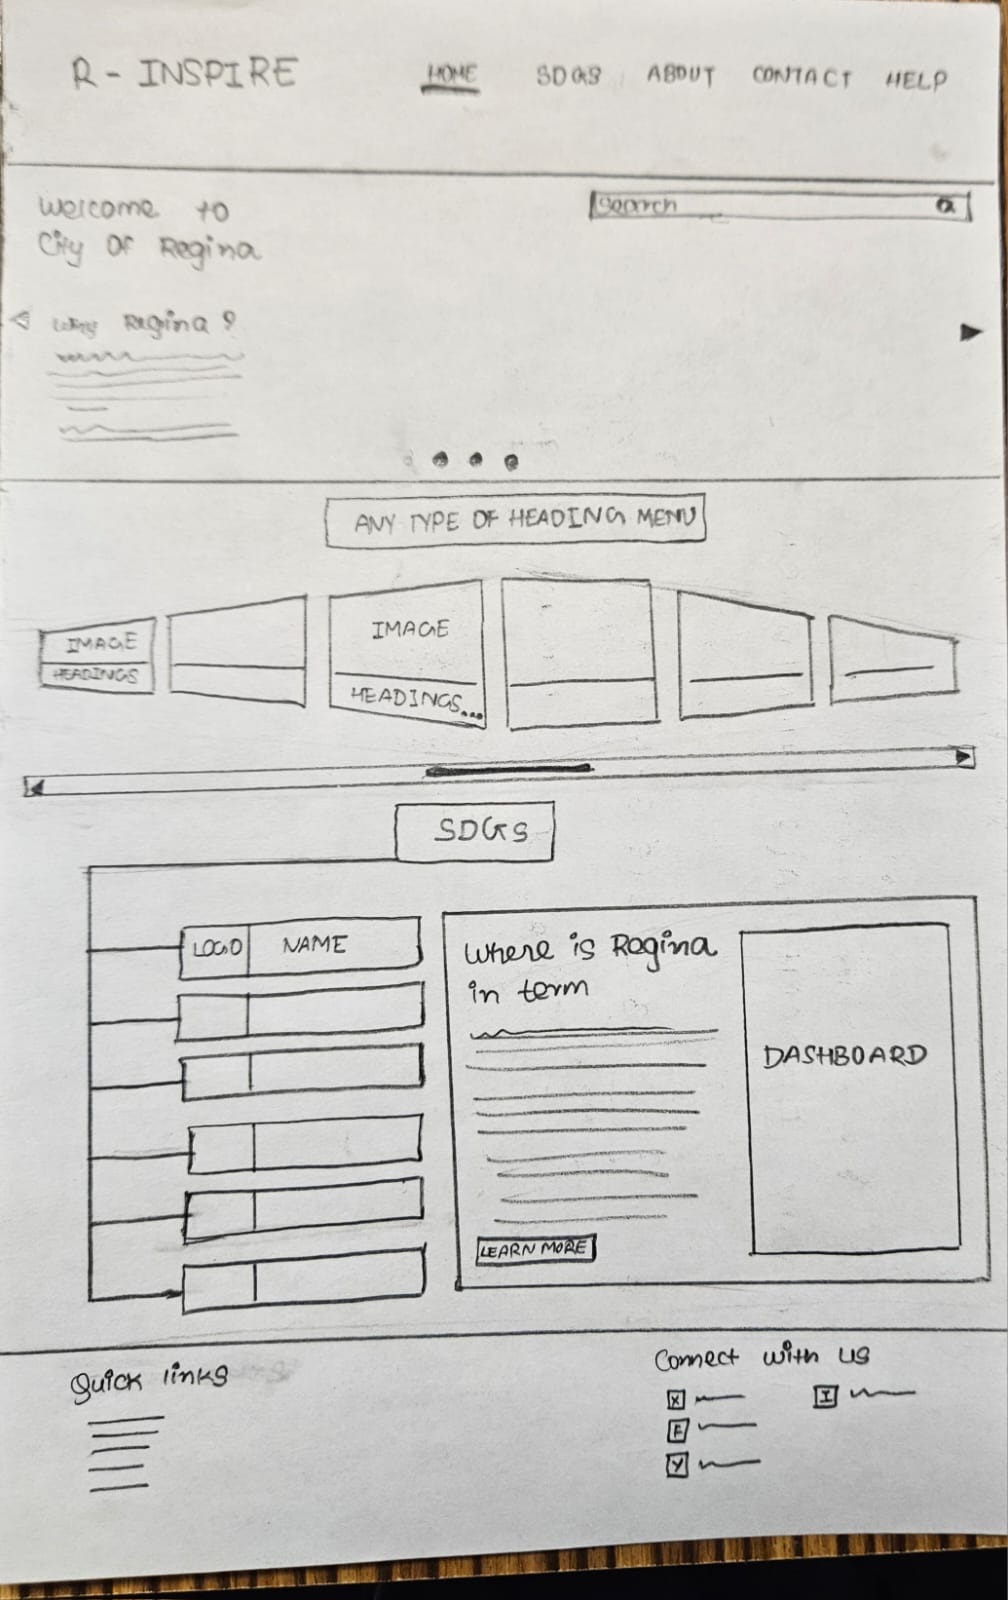 R - INSPIRE
HOME SDGS ABOUT CONTACT HELP
Welcome to
City Of Regina
Search
Why Regina?
ANY TYPE OF HEADING MENU
IMAGE
HEADINGS
IMAGE
HEADINGS...
SDGS
LOGO NAME
Where is Regina
in term
DASHBOARD
LEARN MORE
Quick links
Connect with us
X
I
F
Y